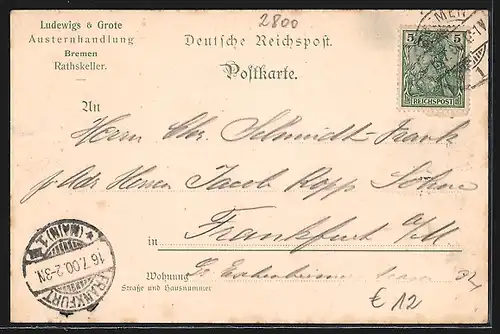 Ludewigs & Grote
Austernhandlung
Bremen
Rathskeller.
2800
Deutsche Reichspost.
Postkarte.
5 5
REICHSPOST
MEN
1
An
Herrn Chr. Schmidt-Frank
p. Adr. Herren Jacob Ropp Söhne
in Frankfurt a/M.
Wohnung Gr.
Straße und Hausnummer
FRANKFURT
(MAIN) 1
16.7.00.2-3N.
€ 12